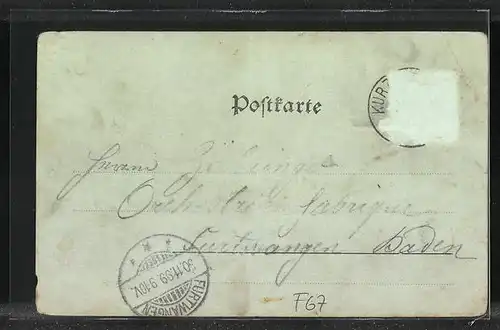 Postkarte
KUR
Herrn
Orchestrion fabrique
Furtwangen Baden
FURTWANGEN
30.11.99.9-10V.
F67